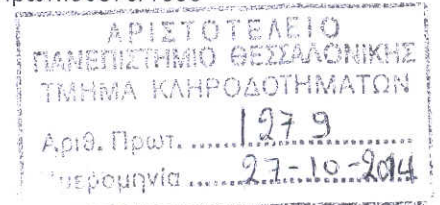 ΑΡΙΣΤΟΤΕΛΕΙΟ
ΠΑΝΕΠΙΣΤΗΜΙΟ ΘΕΣΣΑΛΟΝΙΚΗΣ
ΤΜΗΜΑ ΚΛΗΡΟΔΟΤΗΜΑΤΩΝ
Αριθ. Πρωτ. 1279
Ημερομηνία 27-10-2014